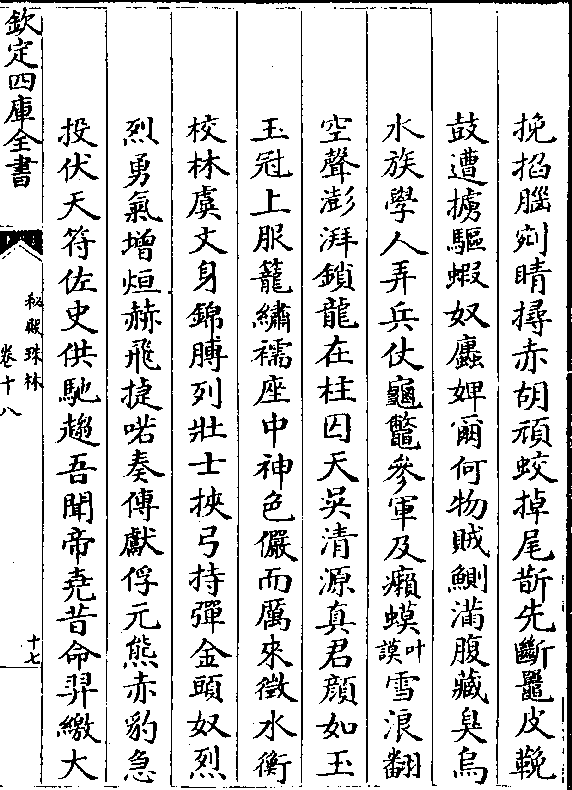 挽掐腦剜睛撏赤胡頑蛟掉尾斮先斷鼉皮鞔
鼓遭擄驅蝦奴蠯婢爾何物賊鰂滿腹藏臭烏
水族學人弄兵仗龜鼈參軍及癩蟆叶謨雪浪翻
空聲澎湃鎖龍在柱囚天吳清源真君顏如玉
玉冠上服籠繡襦座中神色儼而厲來徵水衡
校林虞文身錦膊列壯士挾弓持彈金頭奴烈
烈勇氣增烜赫飛捷喏奏傳獻俘元熊赤豹急
投伏天符佐史供馳趨吾聞帝堯昔命羿繳大
欽定四庫全書
秘殿珠林
卷十八
十七